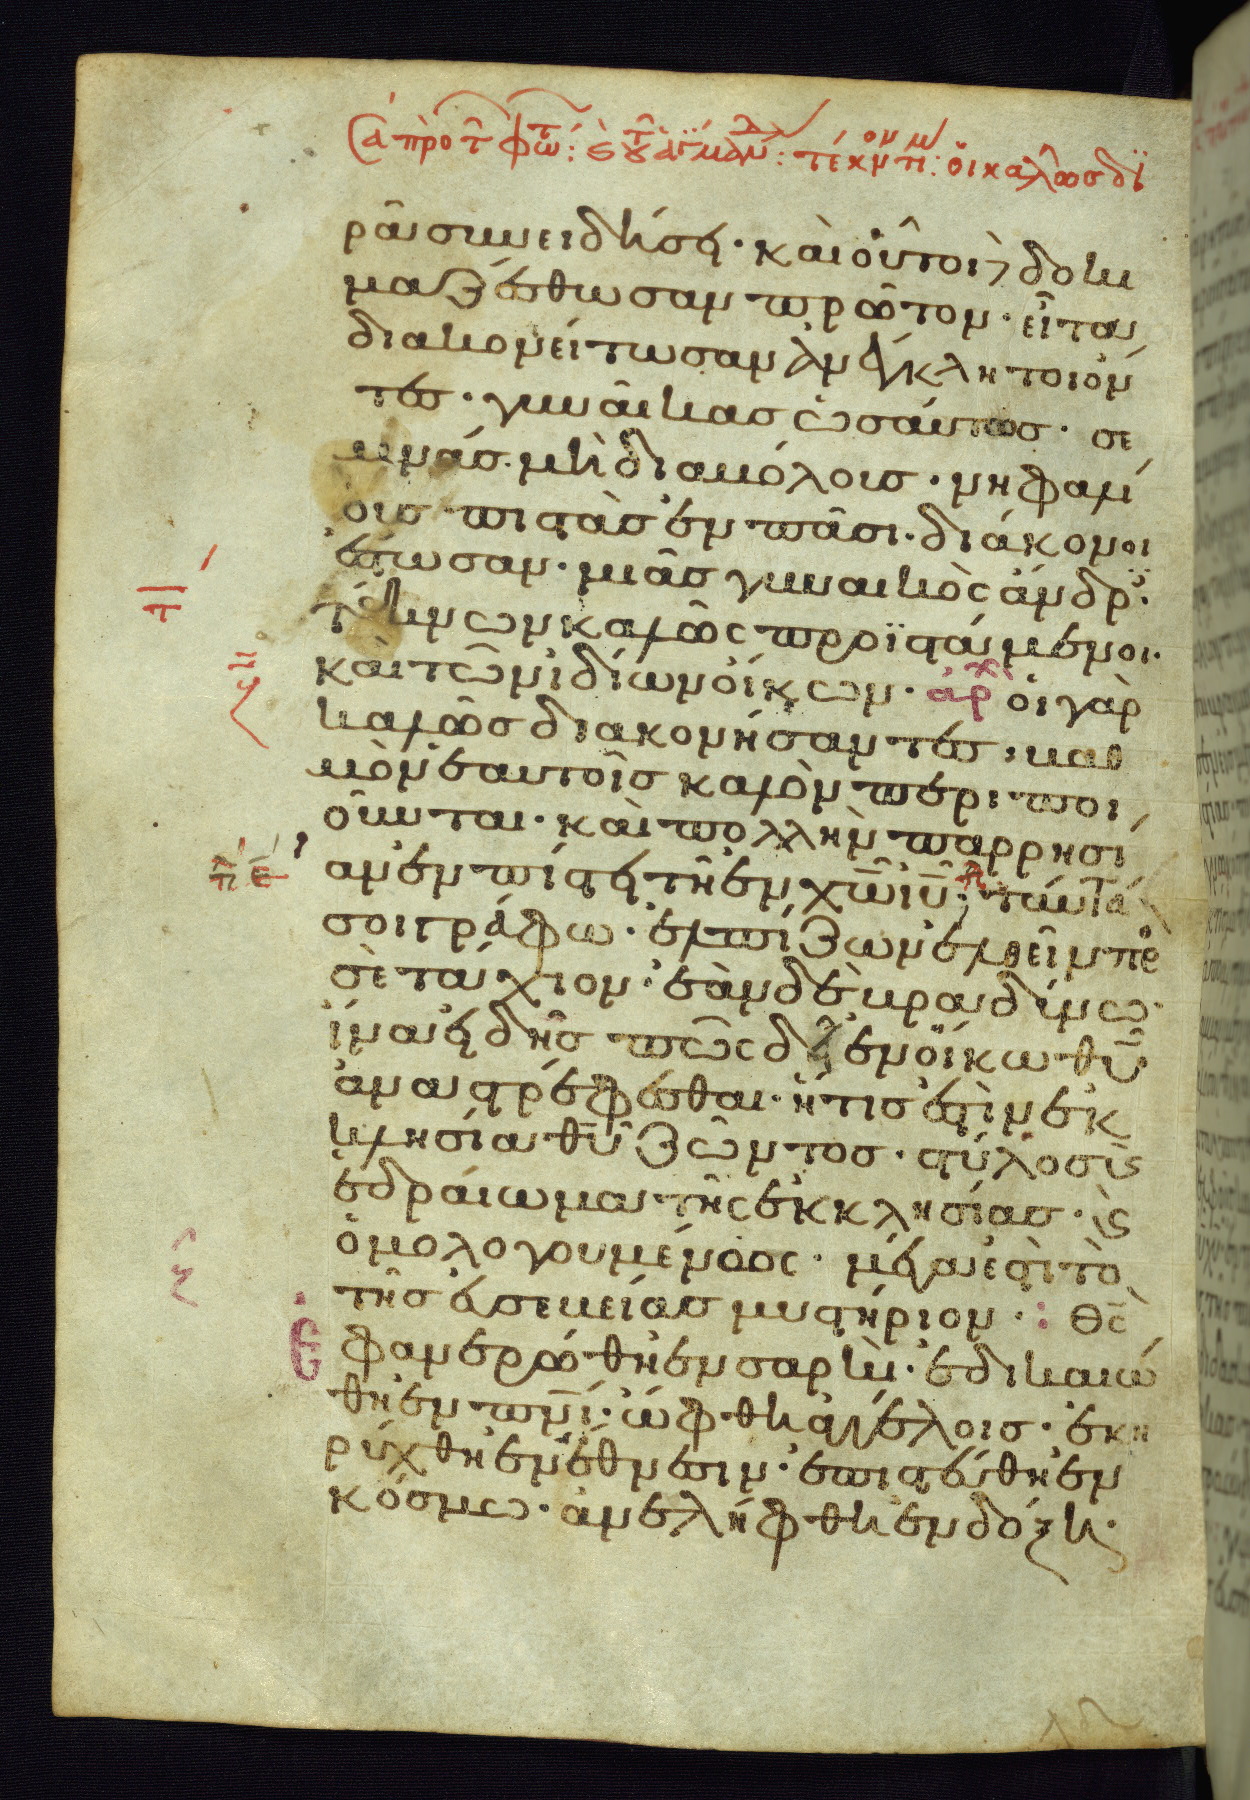 ρᾶ συνειδήσει· καὶ οὗτοι δὲ δοκι
μαζέσθωσαν πρῶτον· εἶτα
διακονείτωσαν ἀνέγκλητοι ὄν
τες· γυναῖκας ὡσαύτως· σε
μνάς· μὴ διαβόλους· νηφαλί
ους πιστὰς ἐν πᾶσι· διάκονοι
ἔστωσαν· μιᾶς γυναικὸς ἄνδρες·
τέκνων καλῶς προϊστάμενοι·
καὶ τῶν ἰδίων οἴκων· ἀρχ οἱ γὰρ
καλῶς διακονήσαντες, βαθ
μὸν ἑαυτοῖς καλὸν περιποι
οῦνται· καὶ πολλὴν παρρησί
αν ἐν πίστει τῆ ἐν χω ιυ· ταῦτά
σοι γράφω· ἐλπίζων ἐλθεῖν πρὸς
σὲ τάχιον· ἐὰν δὲ βραδύνω·
ἵνα εἰδῆς πῶς δεῖ ἐν οἴκω θυ
ἀναστρέφεσθαι· ἥτις ἐστὶν ἐκ
κλησία θυ ζῶντος· στύλος καὶ
ἑδραίωμα τῆς ἐκκλησίας· καὶ
ὁμολογουμένως· μέγα ἐστὶ τὸ
τῆς εὐσεβείας μυστήριον· : θς
ἐφανερώθη ἐν σαρκὶ· ἐδικαιώ
θη ἐν πνι· ὤφθη ἀγγέλοις· ἐκη
ρύχθη ἐν ἔθνεσιν· ἐπιστεύθη ἐν
κόσμω· ἀνελήφθη ἐν δόξη·